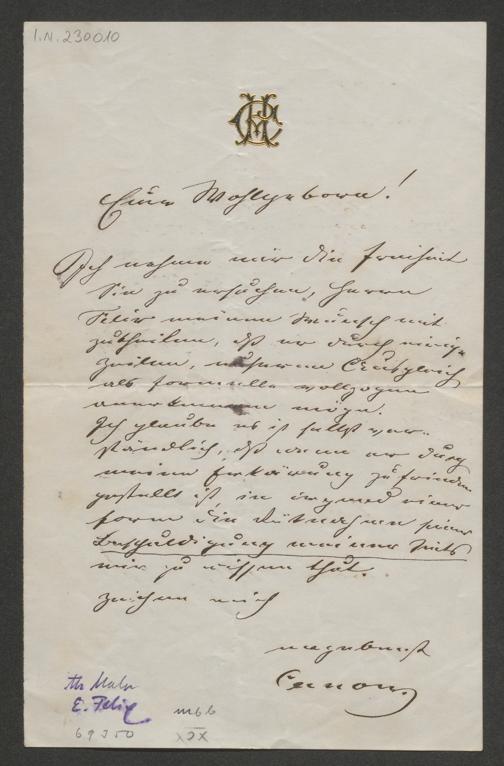 I.N. 230010
Euer Wohlgeboren!
Ich nehme mir die Freiheit
Sie zu ersuchen, Herrn
Felix meinen Wunsch mit
zutheilen, daß er durch einige
Zeilen, unseren Ausgleich
als formelle vollzogen
anerkennen möge.
Ich glaube es ist selbst ver-
ständlich, daß wenn er durch
meine Erklärung zufrieden
gestellt ist in irgend einer
Form die Rücknahme seiner
Beschuldigung meiner Seits
mir zu wissen thut.
Zeichne mich
ergebenst
Canon
Maler
E. Felix
69350